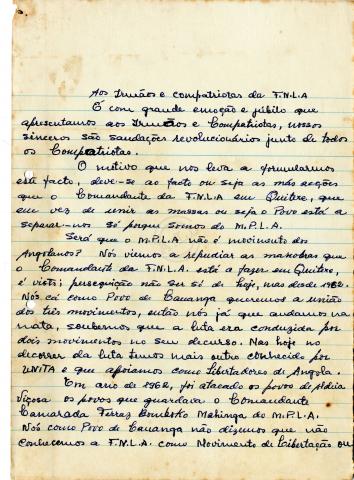 Aos Irmãos e compatriotas da F.N.L.A
É com grande emoção e júbilo que
apresentamos aos Irmãos e Compatriotas, nossos
sinceros são saudações revolucionários junto de todos
os Compatriotas.
O motivo que nos leva a formularmos
este facto, deve-se ao facto ou seja as más acções
que o Comandante da F.N.L.A em Quitexe, que
em vez de unir as massas ou seja o Povo está a
separar-nos só porque somos do M.P.L.A.
Será que o M.P.L.A não é movimento dos
Angolanos? Nós viemos a repudiar as manobras que
o Comandante da F.N.L.A. está a fazer em Quitexe,
é visto; perseguição não ser só de hoje, mas desde 1962.
Nós cá como Povo de Cauanga queremos a união
dos três movimentos, então nós já que andamos na
mata, soubemos que a luta era conduzida por
dois movimentos no seu decurso. Mas hoje no
decorrer da luta temos mais outro conhecido por
UNITA e que apoiamos como Libertadores de Angola.
Em ano de 1962, foi atacado os povos de Aldeia
Viçosa os povos que guardava o Comandante
Camarada Ferraz Bomboko Mabinga do M.P.L.A.
Nós como Povo de Cauanga não dizemos que não
conhecemos a F.N.L.A. como Movimento de Libertação ou